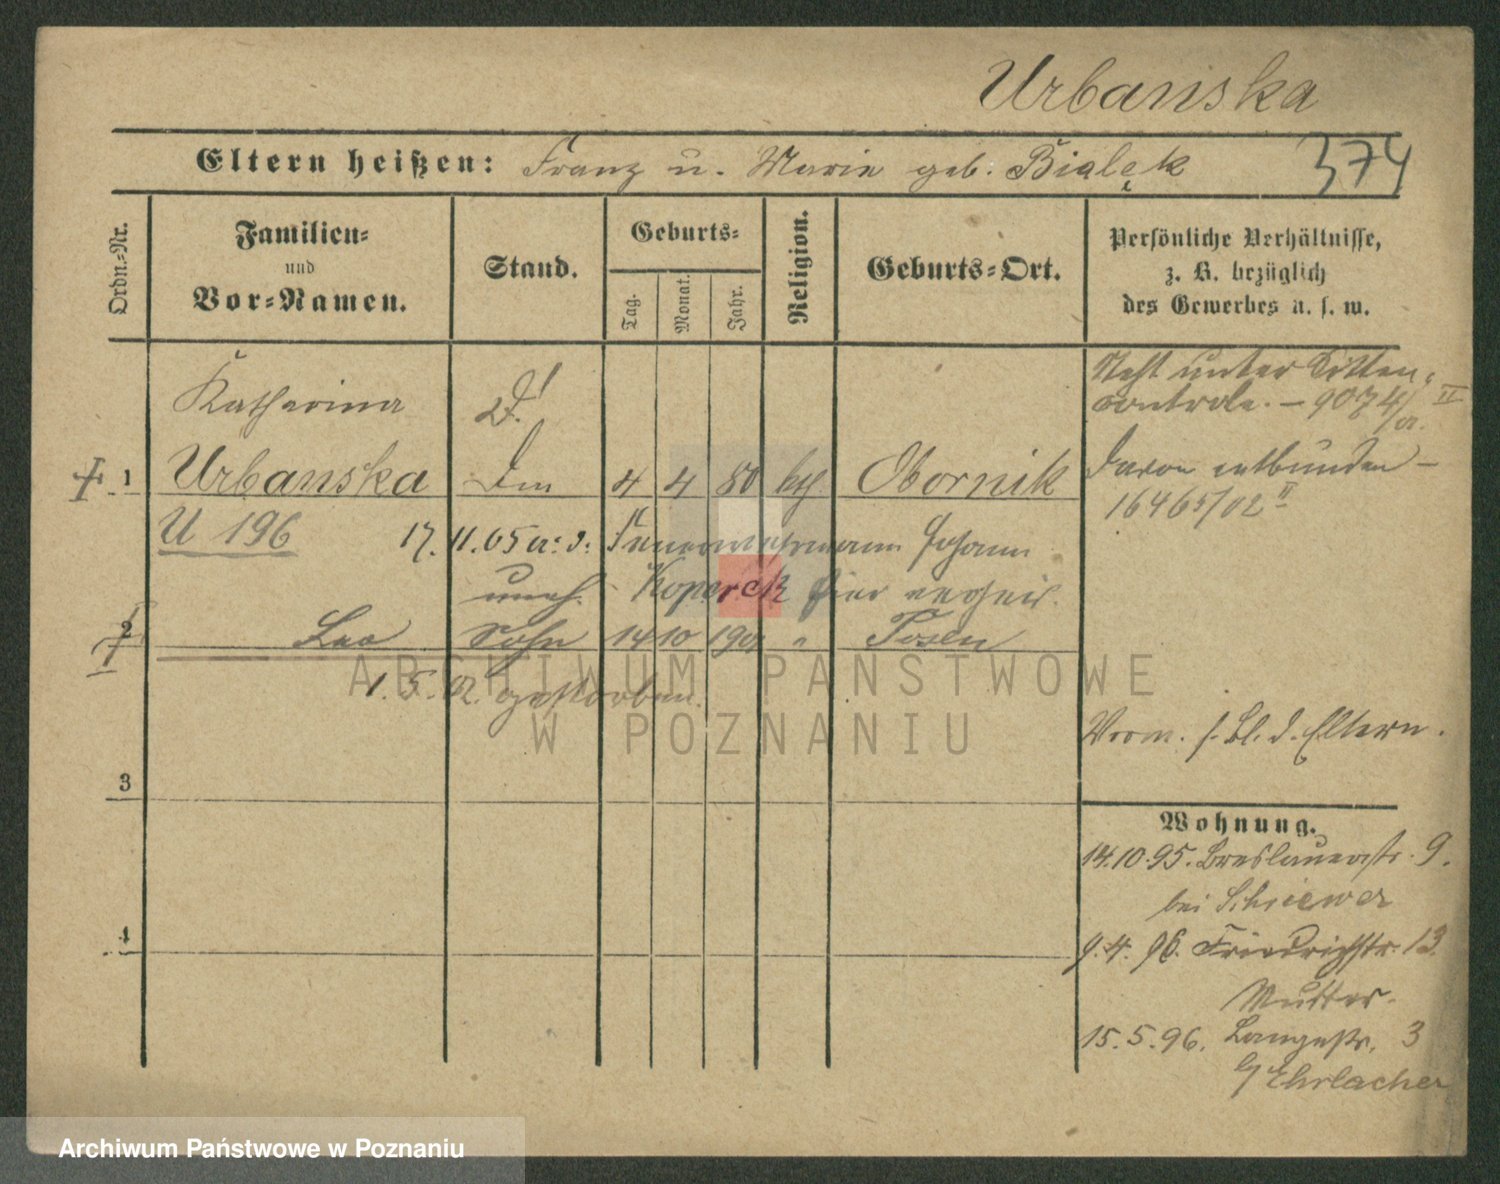 Urbanska
Eltern heißen: Franz u. Marie geb. Bialęk 374
Ordn.-Nr.
Familien-
und
Vor-Namen.
Stand.
Geburts-
Tag.
Monat.
Jahr.
Religion.
Geburts-Ort.
Persönliche Verhältnisse,
z. B. bezüglich
des Gewerbes u. s. w.
Katharina
Steht unter Sitten-
controle. – 9074/01. II
1 Urbanska Dm 4 4 80 kth Obornik
davon entbunden –
16465/02 II
U 196 17. 11. 05 a. d. Feuerwehrmann Johann
uneh. Koperek hier verheir.
2 Leo Sohn 14 10 190 " Posen
1. 5. 02. gestorben.
Vorm. s. Bl. d. Eltern.
3
Wohnung.
14.10.95. Breslauerstr. 9.
bei Schiewer
4
9. 4. 96. Friedrichstr. 13.
Mutter.
15. 5. 96. Langestr. 3
b/ Ehrlacher
ARCHIWUM PAŃSTWOWE
W POZNANIU
Archiwum Państwowe w Poznaniu